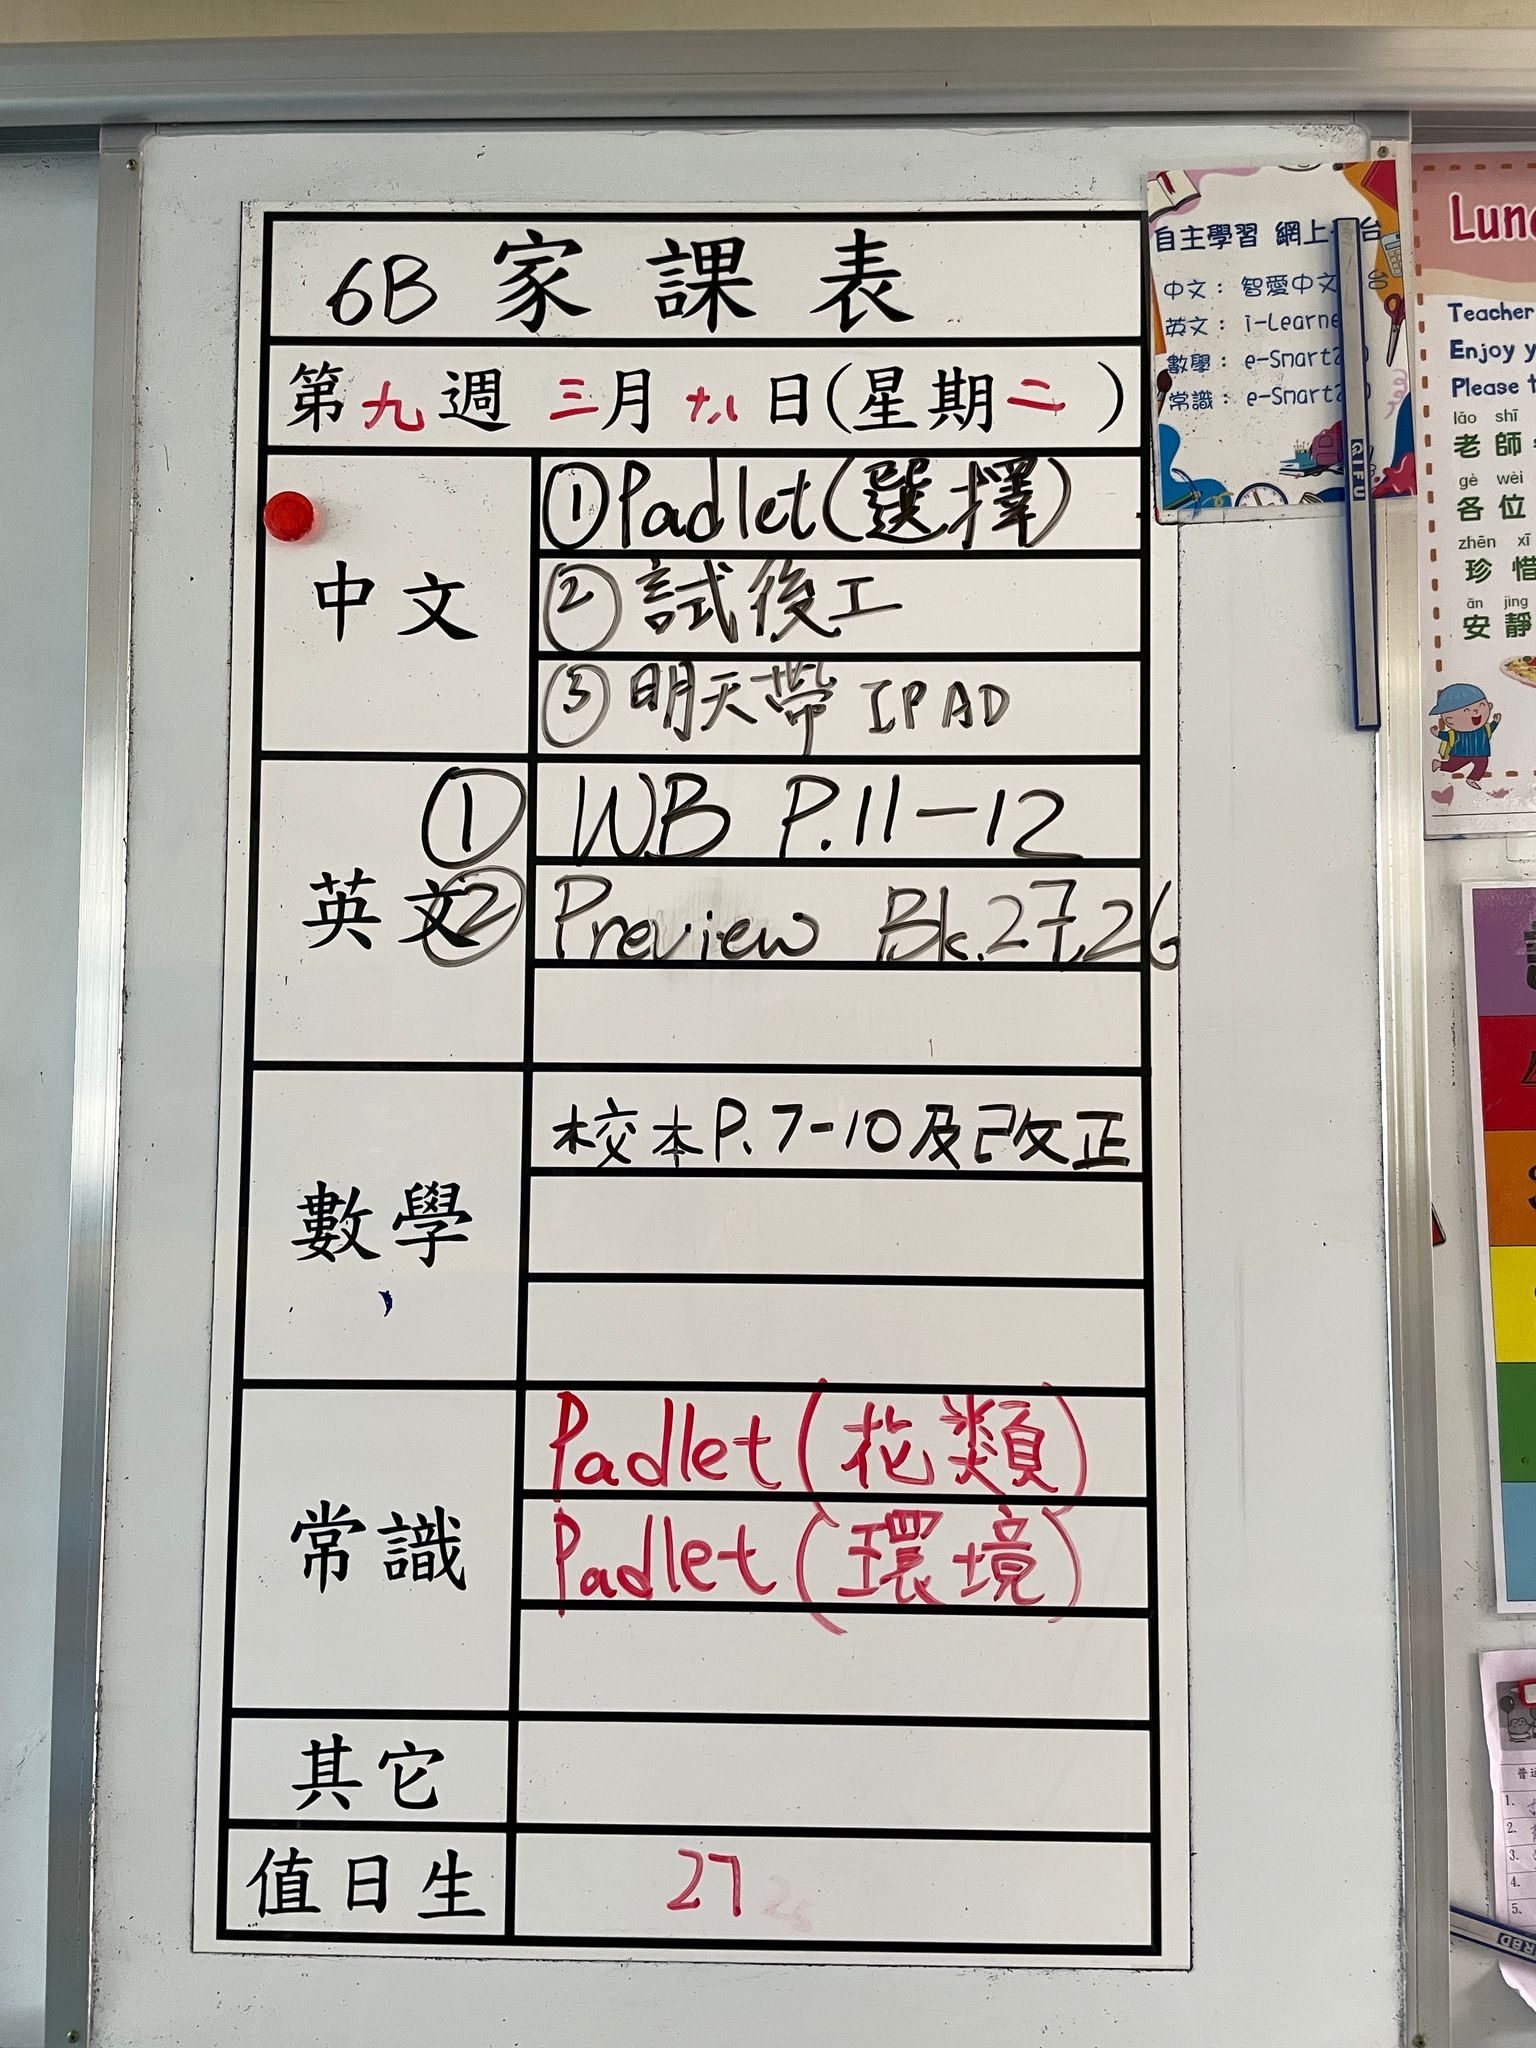 6B 家課表
第九週 三月十八日(星期二)
中文
①Padlet(選擇)
②試後工
③明天帶 IPAD
英文
① WB P.11-12
② Preview Bk.27,26
數學
校本P.7-10及改正
常識
Padlet(花類)
Padlet(環境)
其它
值日生
27
自主學習 網上 台
中文: 智愛中文 台
英文: i-Learne
數學: e-Smart
常識: e-Smart
GIFU
Teacher
Enjoy y
Please t
lǎo shī
老師
gè wèi
各位
zhēn xī
珍惜
ān jìng
安靜
1.
2.
3.
4.
5.